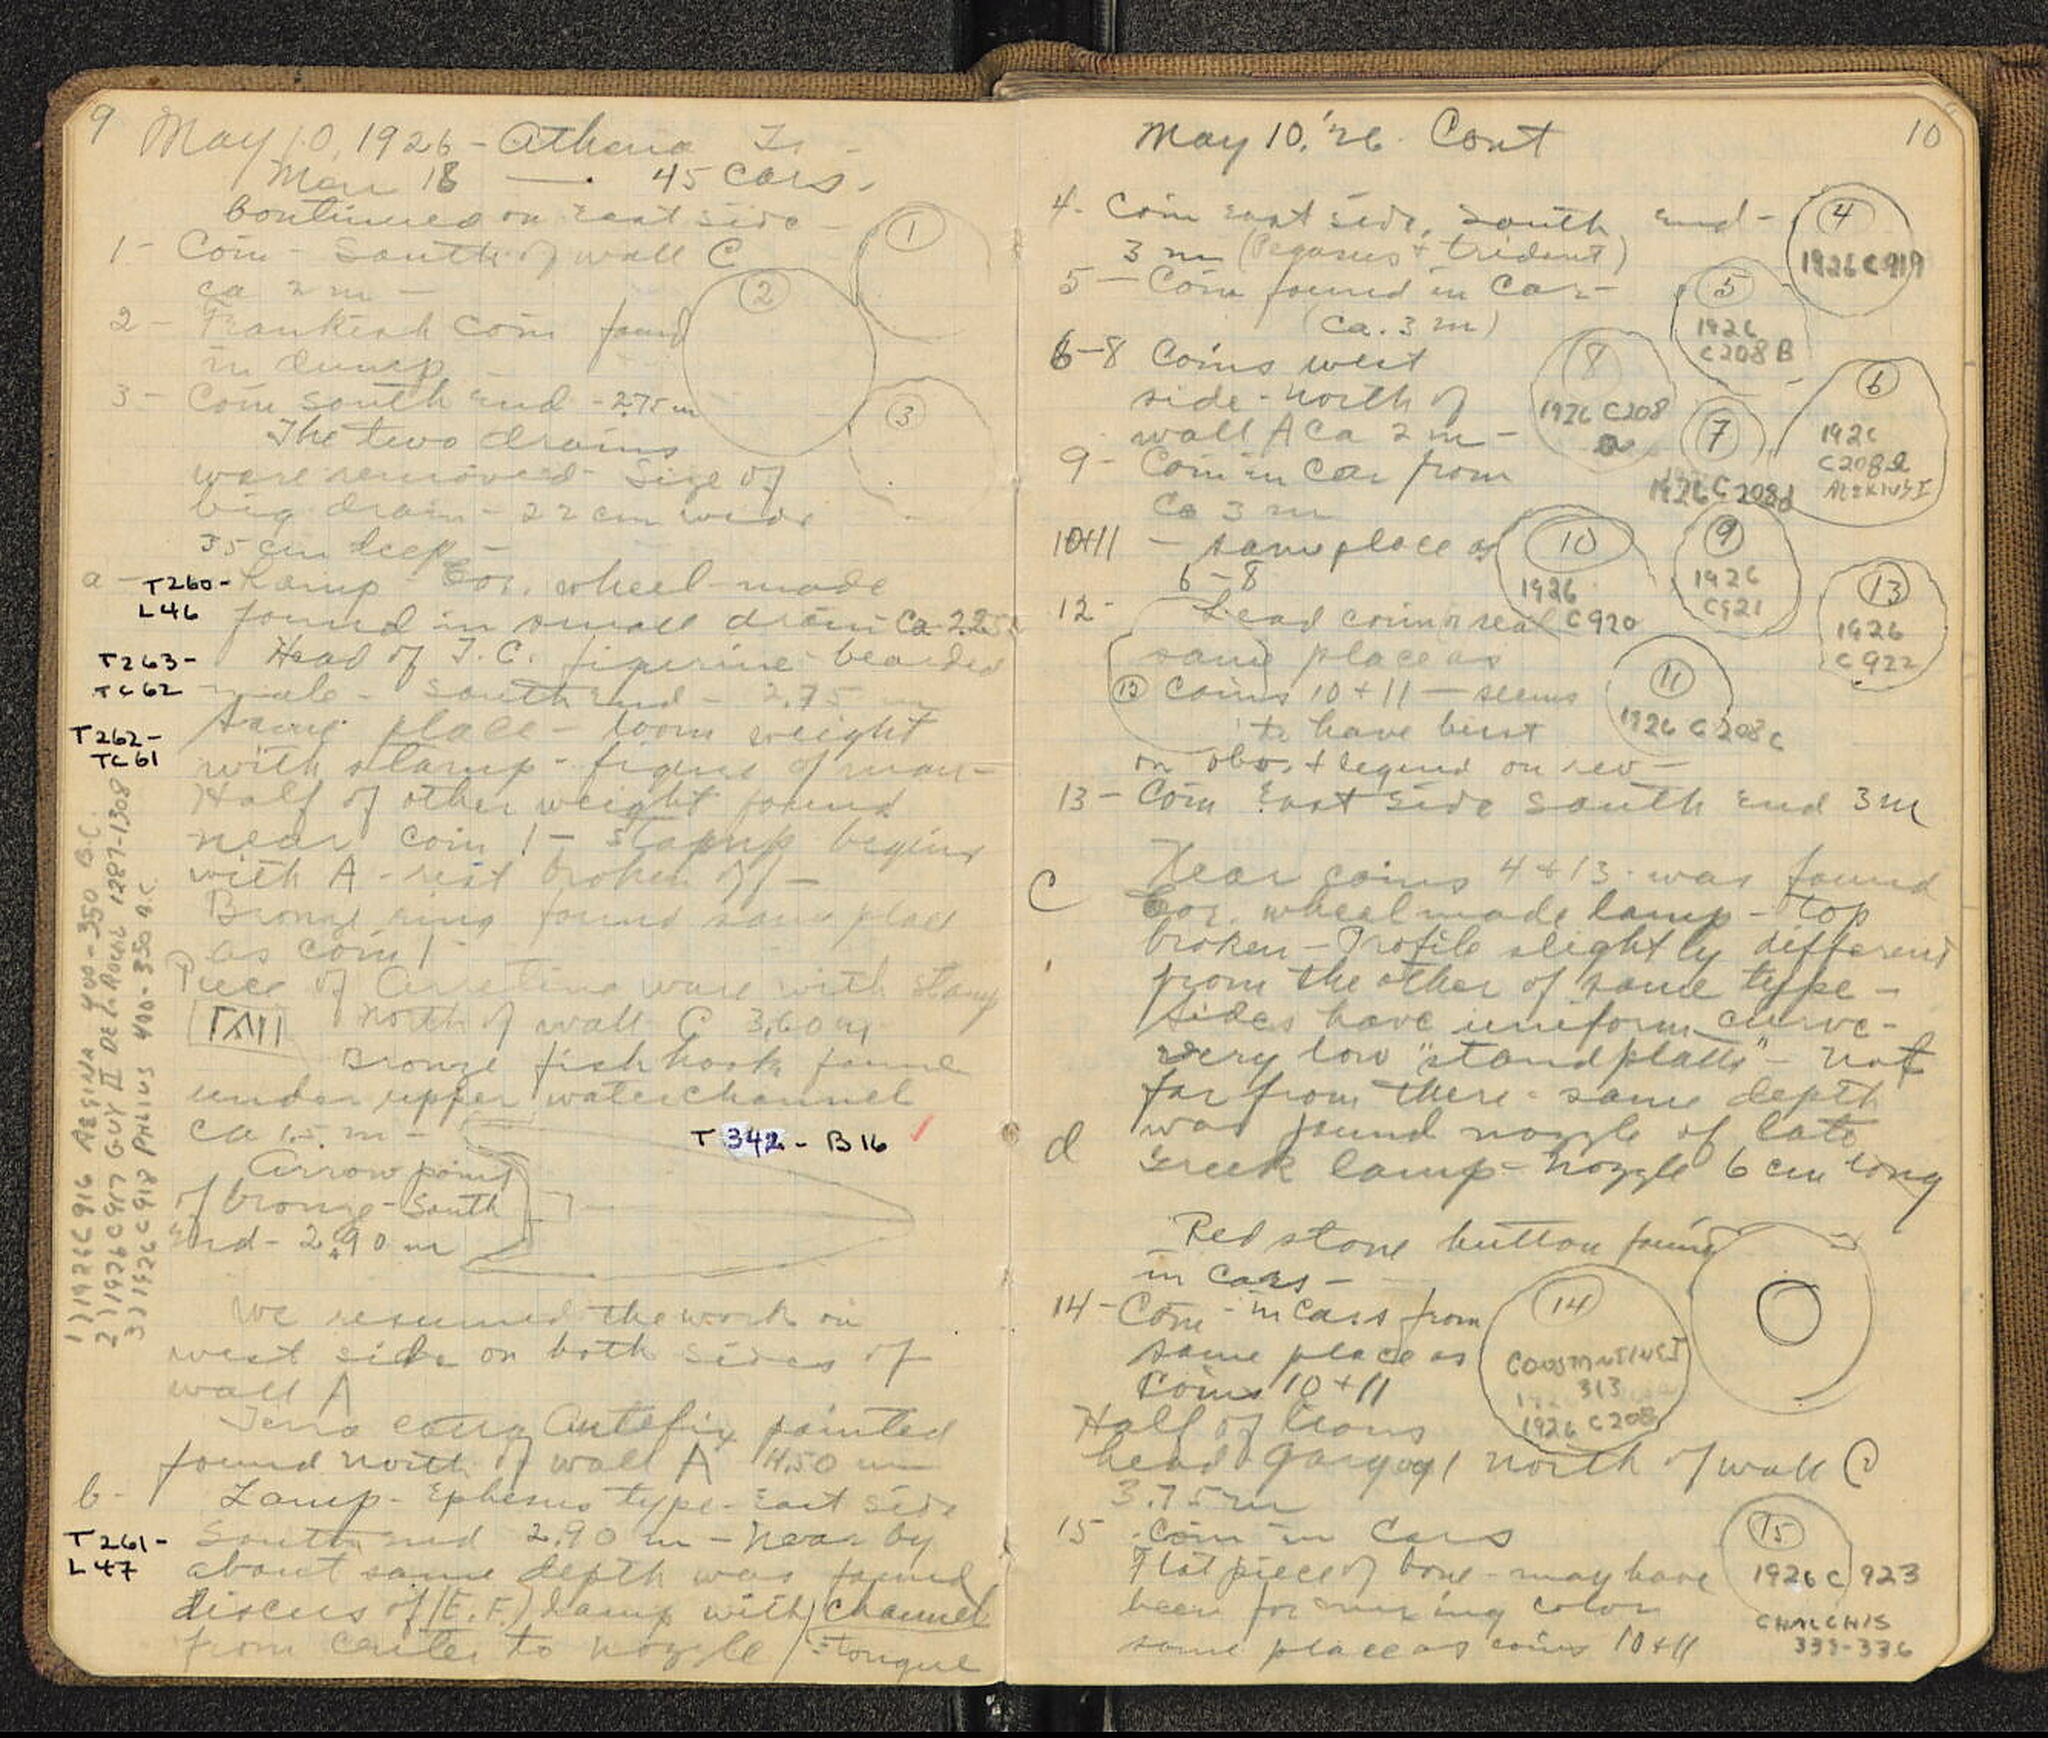 9
May 10, 1926 - Athena Tr -
Men 18 — 45 Cars -
Continued on East side -
1 - Coin - South of wall C
ca 2 m -
2 - Frankish coin found
in dump -
3 - Coin South End - 2.75 m
The two drains
were removed - Size of
big drain - 22 cm wide
35 cm deep -
1
2
3
a - T260 - L46 Lamp Cor. wheel-made
found in small drain Ca 2.25
T263 - TC62 Head of T.C. figurine - bearded
male - South End - 2.75 m
T262 - TC61 Same place - loom weight
with stamp - figure of man -
Half of other weight found
near coin 1 - stamp begins
with A - rest broken off -
Bronze ring found same place
as coin 1
Piece of Arretine ware with stamp
North of wall C 3.60 m
Bronze fish hook found
under upper waterchannel
ca 1.5 m -
T 342 - B 16
Arrow point
of bronze - South
End - 2.90 m
We resumed the work on
west side on both sides of
wall A
Terra cotta Antefix painted
found north of wall A 4.50 m
b - Lamp - Ephesus type - East side
T261 - L47 South end 2.90 m - Near by
about same depth was found
discus of (E.F.) Lamp with channel
from center to nozzle / = tongue
1) 1926 C 916 AEGINA 400-350 B.C.
2) 1926 C 917 GUY II DE LA ROCHE 1287-1308
3) 1926 C 918 PHLIUS 400-350 B.C.
May 10, '26. Cont
10
4 - Coin East side, South end -
3 m (Pegasus + trident)
5 - Coin found in Car -
(ca. 3 m)
6-8 Coins west
side - north of
wall A Ca 2 m -
9 - Coin in Car from
Ca 3 m
10+11 - same place as
6-8
12 - Lead coin or seal
same place as
coins 10 + 11 - seems
to have bust
on obv. + legend on rev -
13 - Coin East side South end 3 m
4
1926 C 919
5
1926
C 208 B
8
1926 C208
a
7
1926 C 208d
6
1926
C 208 e
ALEXIUS I
10
1926
C 920
9
1926
C 921
13
1926
C 922
12
11
1926 C 208 c
C Near coins 4 + 13 was found
Cor. wheelmade lamp - top
broken - Profile slightly different
from the other of same type -
sides have uniform curve -
very low "standplatte" - Not
far from there - same depth
d was found nozzle of late
Greek lamp - Nozzle 6 cm long
Red stone button found
in cars -
14 - Coin - in Cars from
same place as
Coins 10 + 11
14
CONSTANTINE I
313
1926 C 208
Half of lions
head gargoyl north of wall C
3.75 m
15 - Coin in Cars
Flat piece of bone - may have
been for mixing color
same place as coins 10 + 11
15
1926 C 923
CHALCHIS
338-336